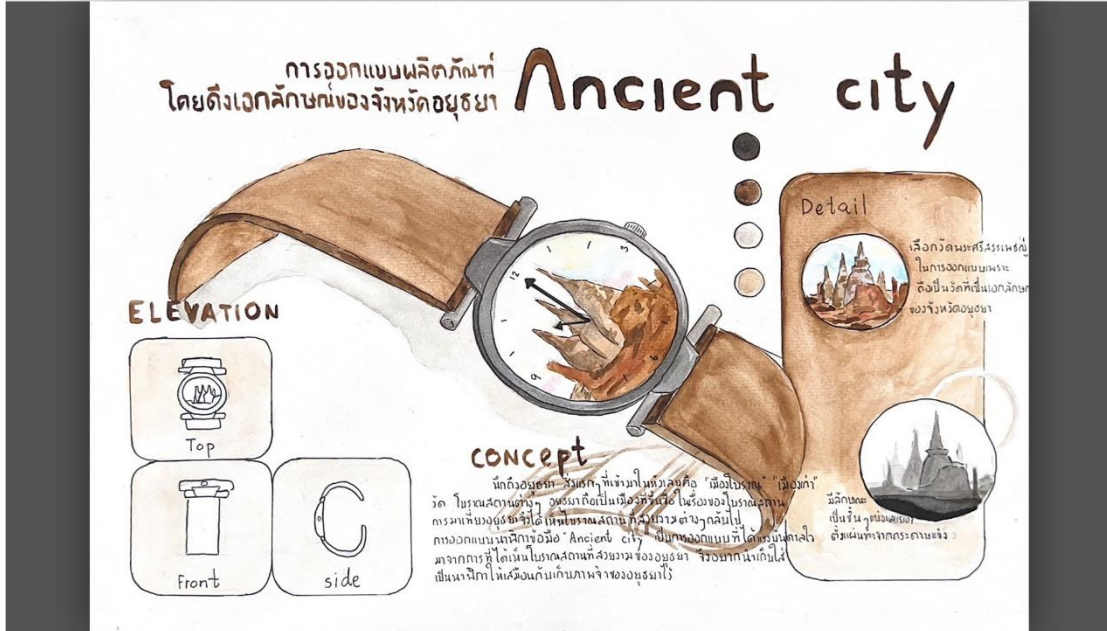 การออกแบบผลิตภัณฑ์
โดยดึงเอกลักษณ์ของจังหวัดอยุธยา
Ancient city
Detail
เลือกวัดพระศรีสรรเพชญ์
ในการออกแบบเพราะ
ถือเป็นวัดที่เป็นเอกลักษณ์
ของจังหวัดอยุธยา
12
3
6
9
ELEVATION
Top
Front
side
CONCEPT
นึกถึงอยุธยา สิ่งแรกๆที่เข้ามาในหัวเลยคือ "เมืองโบราณ" "เมืองเก่า"
วัด โบราณสถานต่างๆ อยุธยาถือเป็นเมืองที่ขึ้นชื่อในเรื่องของโบราณสถาน
การมาเที่ยวอยุธยาจึงได้เห็นโบราณสถานที่สวยงามต่างๆกลับไป
การออกแบบนาฬิกาข้อมือ "Ancient city" เป็นการออกแบบที่ได้แรงบันดาลใจ
มาจากการที่ได้เห็นโบราณสถานที่สวยงามของอยุธยา จึงอยากนำเก็บใส่
เป็นนาฬิกาให้เสมือนกับเก็บภาพจำของอยุธยาไว้
มีลักษณะ
เป็นชั้นๆ